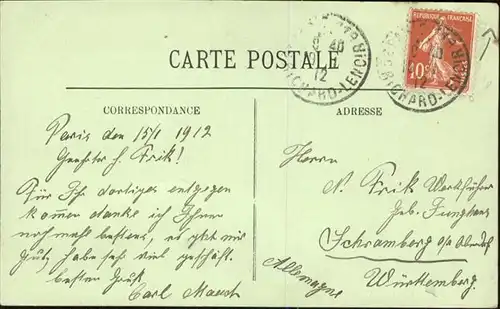 CARTE POSTALE
REPUBLIQUE FRANÇAISE
10c
RICHARD-LENOIR
12
RICHARD-LENOIR
12
CORRESPONDANCE
Paris den 15/1 1912
Geehrter H. Frik!
Für Ihr dortiges entgegen
kommen danke ich Ihnen
nochmahl bestens, es geht mir
gut, habe sehr viel geschäft.
besten Gruß
Carl Mauch
ADRESSE
Herrn
N. Frik Werkführer
Geb. Junghans
Schramberg o/a Oberndorf
Württemberg.
Allemagne